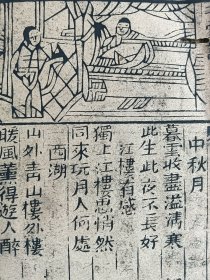 中秋月
暮雲收盡溢清寒
此生此夜不長好
江樓有感
獨上江樓思悄然
同來玩月人何處
西湖
山外青山樓外樓
暖風薰得遊人醉